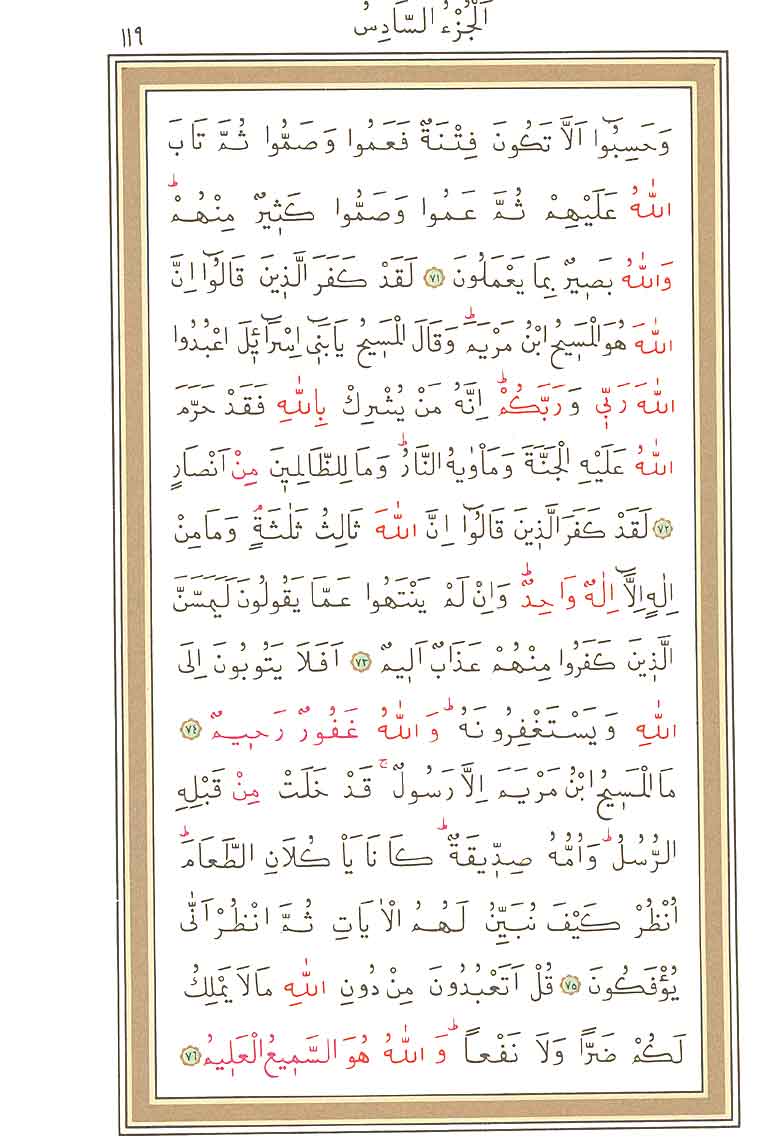 ١١٩
اَلْجُزْءُ السَّادِسُ
وَحَسِبُٓوا اَلَّا تَكُونَ فِتْنَةٌ فَعَمُوا وَصَمُّوا ثُمَّ تَابَ
اللّٰهُ عَلَيْهِمْ ثُمَّ عَمُوا وَصَمُّوا كَث۪يرٌ مِنْهُمْۜ
وَاللّٰهُ بَص۪يرٌ بِمَا يَعْمَلُونَ ﴿٧١﴾ لَقَدْ كَفَرَ الَّذ۪ينَ قَالُٓوا اِنَّ
اللّٰهَ هُوَ الْمَس۪يحُ ابْنُ مَرْيَمَۜ وَقَالَ الْمَس۪يحُ يَابَن۪ٓي اِسْرَٓائ۪لَ اعْبُدُوا
اللّٰهَ رَبّ۪ي وَرَبَّكُمْۜ اِنَّهُ مَنْ يُشْرِكْ بِاللّٰهِ فَقَدْ حَرَّمَ
اللّٰهُ عَلَيْهِ الْجَنَّةَ وَمَأْوٰيهُ النَّارُۜ وَمَا لِلظَّالِم۪ينَ مِنْ اَنْصَارٍ
﴿٧٢﴾ لَقَدْ كَفَرَ الَّذ۪ينَ قَالُٓوا اِنَّ اللّٰهَ ثَالِثُ ثَلٰثَةٍۢ وَمَا مِنْ
اِلٰهٍ اِلَّٓا اِلٰهٌ وَاحِدٌۜ وَاِنْ لَمْ يَنْتَهُوا عَمَّا يَقُولُونَ لَيَمَسَّنَّ
الَّذ۪ينَ كَفَرُوا مِنْهُمْ عَذَابٌ اَل۪يمٌ ﴿٧٣﴾ اَفَلَا يَتُوبُونَ اِلَى
اللّٰهِ وَيَسْتَغْفِرُونَهُۜ وَاللّٰهُ غَفُورٌ رَح۪يمٌ ﴿٧٤﴾
مَا الْمَس۪يحُ ابْنُ مَرْيَمَ اِلَّا رَسُولٌۚ قَدْ خَلَتْ مِنْ قَبْلِهِ
الرُّسُلُۜ وَاُمُّهُ صِدّ۪يقَةٌۜ كَانَا يَأْكُلَانِ الطَّعَامَۜ
اُنْظُرْ كَيْفَ نُبَيِّنُ لَهُمُ الْاٰيَاتِ ثُمَّ انْظُرْ اَنّٰى
يُؤْفَكُونَ ﴿٧٥﴾ قُلْ اَتَعْبُدُونَ مِنْ دُونِ اللّٰهِ مَا لَا يَمْلِكُ
لَكُمْ ضَرًّا وَلَا نَفْعاًۜ وَاللّٰهُ هُوَ السَّم۪يعُ الْعَل۪يمُ ﴿٧٦﴾